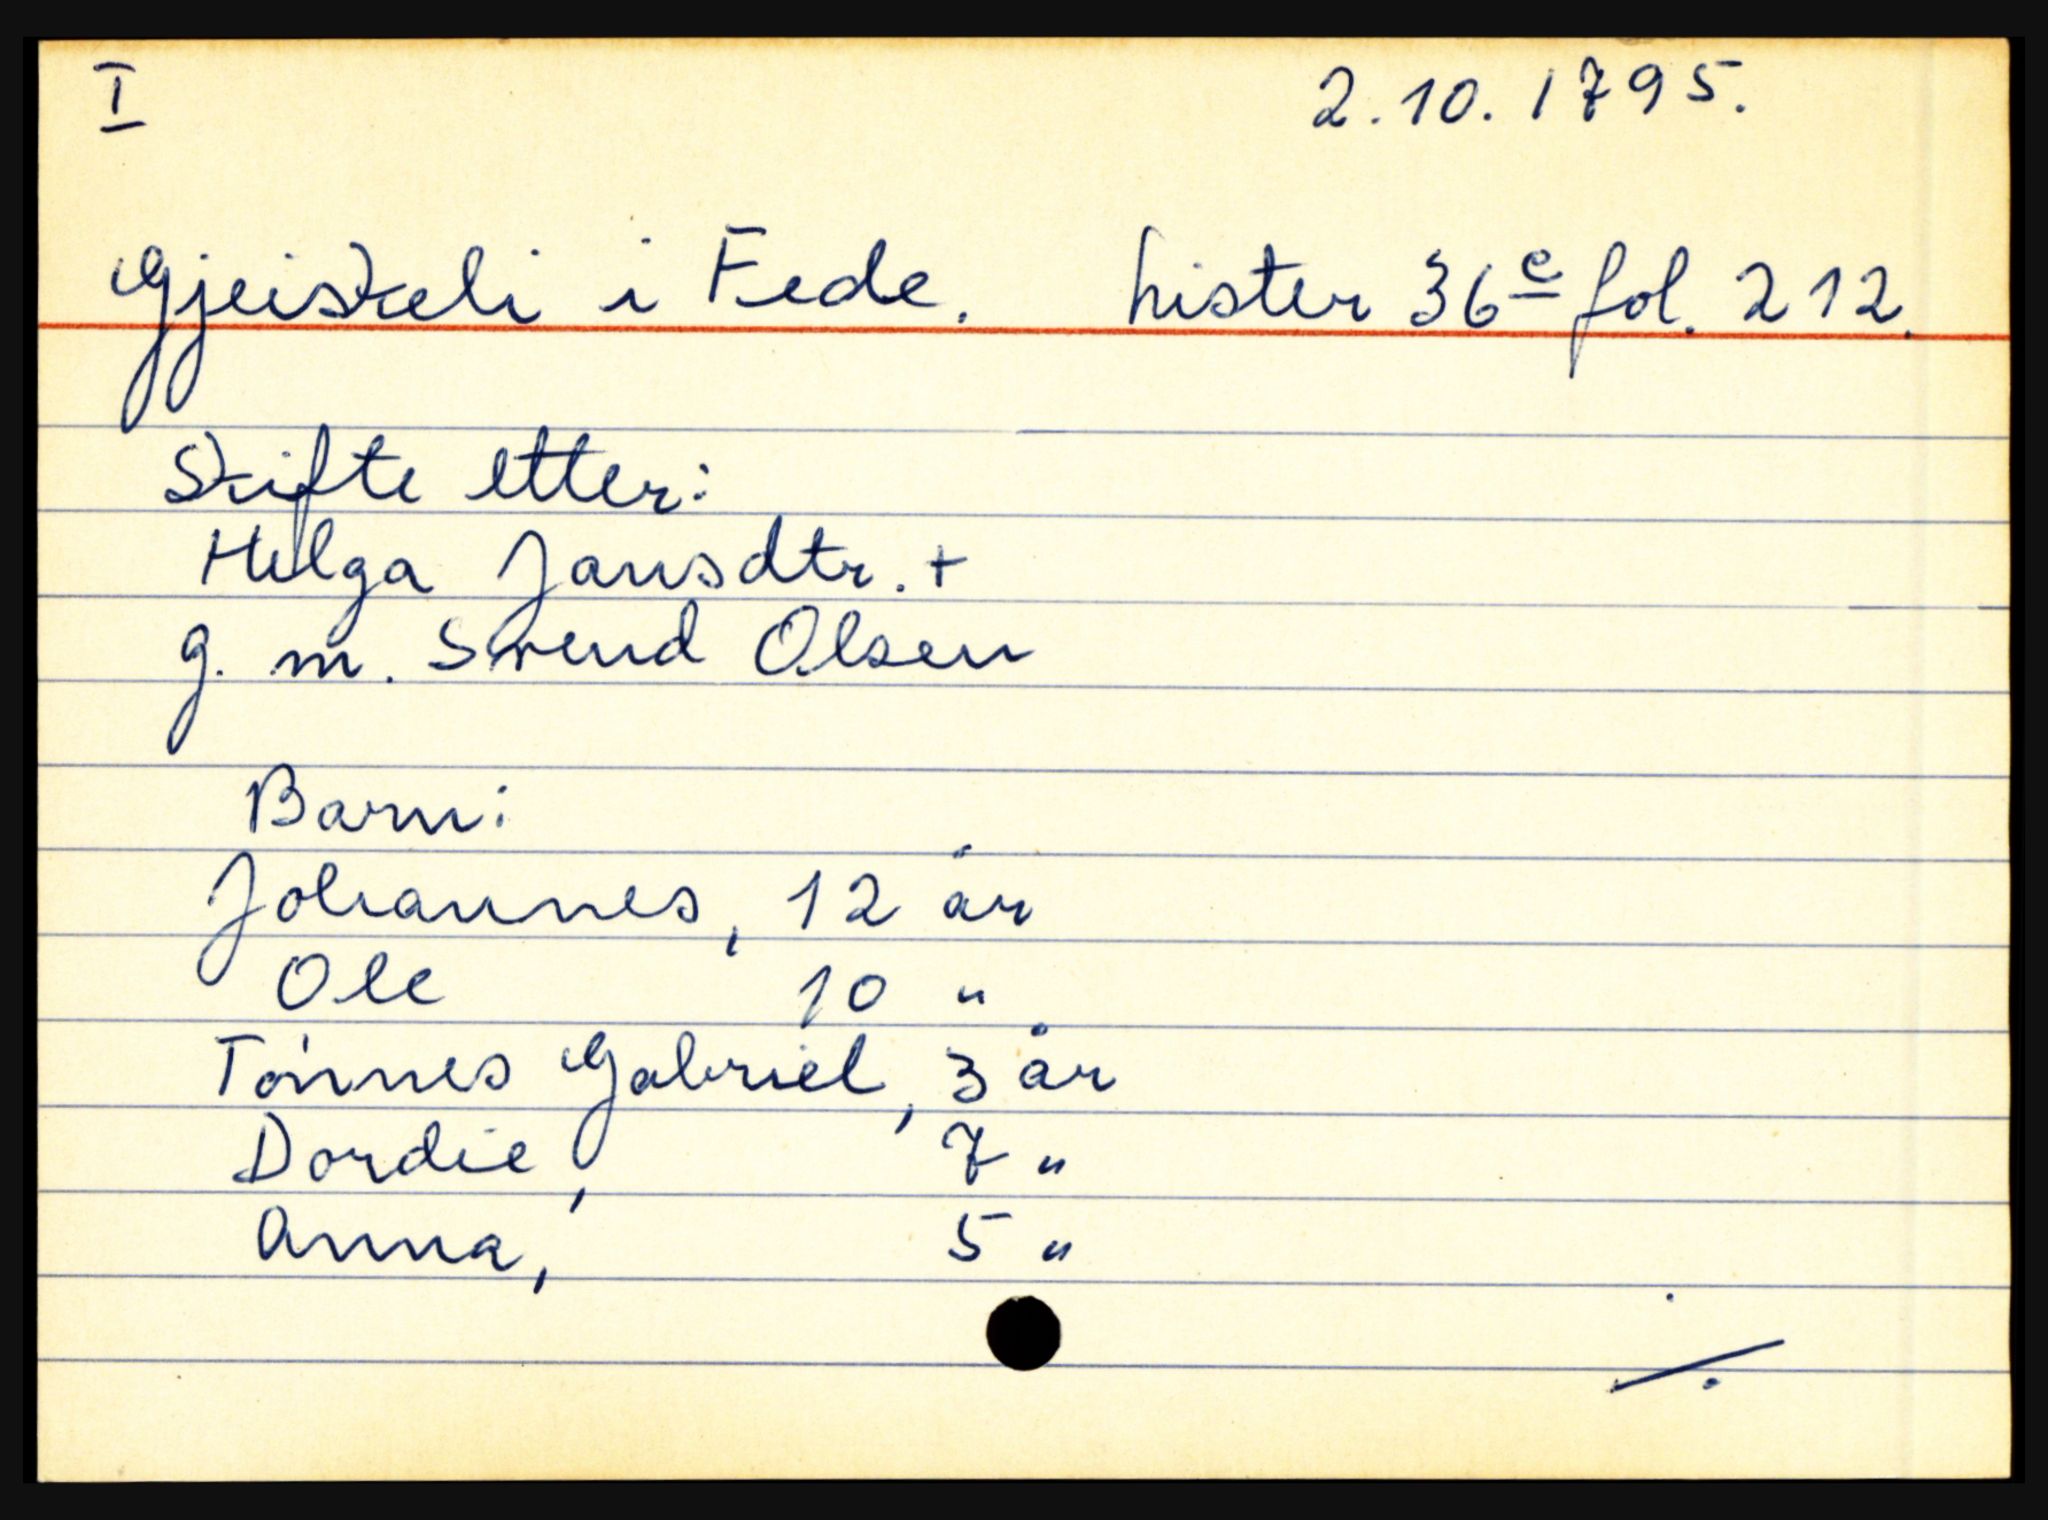 I 2.10.1795.
Gjeiskeli i Fede. Lister 36e fol. 212.
Skifte etter:
Helga Jansdtr. +
g. m. Svend Olsen
Barn:
Johannes, 12 år
Ole 10 "
Tónnes Gabriel, 3 år
Dordie, 7 "
Anna, 5 "
⁒